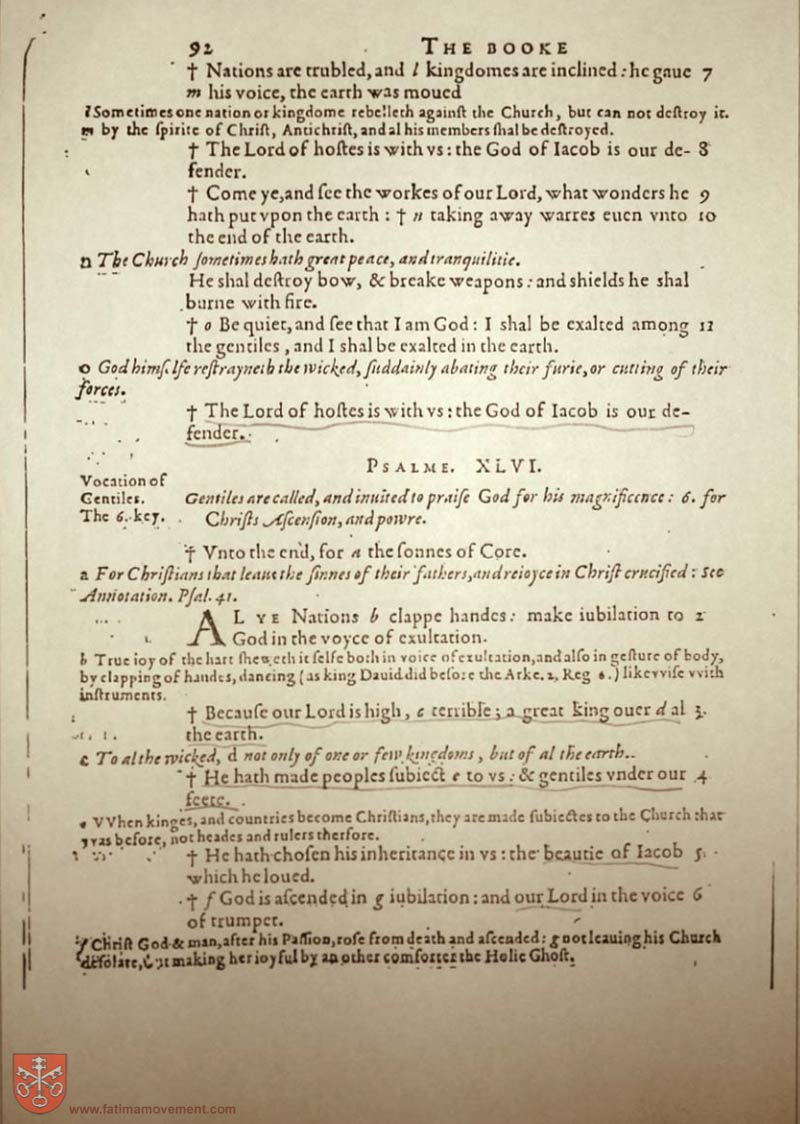 92 THE BOOKE
† Nations are trubled, and l kingdomes are inclined: he gaue 7
m his voice, the earth was moued
l Sometimes one nation or kingdome rebelleth againſt the Church, but can not deſtroy it.
m by the ſpirite of Chriſt, Antichriſt, and al his members ſhal be deſtroyed.
† The Lord of hoſtes is with vs: the God of Iacob is our de- 8
fender.
† Come ye, and ſee the workes of our Lord, what wonders he 9
hath put vpon the earth: † n taking away warres euen vnto 10
the end of the earth.
n The Church ſometimes hath great peace, and tranquilitie.
He shal deſtroy bow, & breake weapons: and shields he shal
burne with fire.
† o Be quiet, and ſee that I am God: I shal be exalted among 11
the gentiles, and I shal be exalted in the earth.
o God himſelfe reſtrayneth the wicked, ſuddainly abating their furie, or cutting of their
forces.
† The Lord of hoſtes is with vs: the God of Iacob is our de-
fender.
PSALME. XLVI.
Vocation of
Gentiles.
The 6. key.
Gentiles are called, and inuited to praiſe God for his magnificence: 6. for
Chriſts Aſcenſion, and powre.
† Vnto the end, for a the ſonnes of Core.
a For Chriſtians that leaue the ſinnes of their fathers, and reioyce in Chriſt crucified: See
Annotation. Pſal. 41.
AL YE Nations b clappe handes: make iubilation to 2
God in the voyce of exultation.
b True ioy of the hart ſheweth it ſelfe both in voice of exultation, and alſo in geſture of body,
by clapping of handes, dancing (as king Dauid did before the Arke. 2. Reg 6.) likevviſe vvith
inſtruments.
† Becauſe our Lord is high, c terrible; a great king ouer d al 3.
the earth.
c To al the wicked, d not only of one or few kingdoms, but of al the earth.
† He hath made peoples ſubiect e to vs: & gentiles vnder our 4
feete.
e VVhen kinges, and countries become Chriſtians, they are made ſubiectes to the Church that
vvas before, not heades and rulers therfore.
† He hath choſen his inheritance in vs: the beautie of Iacob 5.
which he loued.
† f God is aſcended in g iubilation: and our Lord in the voice 6
of trumpet.
f Chriſt God & man, after his Paſſion, roſe from death and aſcended: g not leauing his Church
deſolate, but making her ioyful by an other comforter the Holie Ghoſt.
www.fatimamovement.com